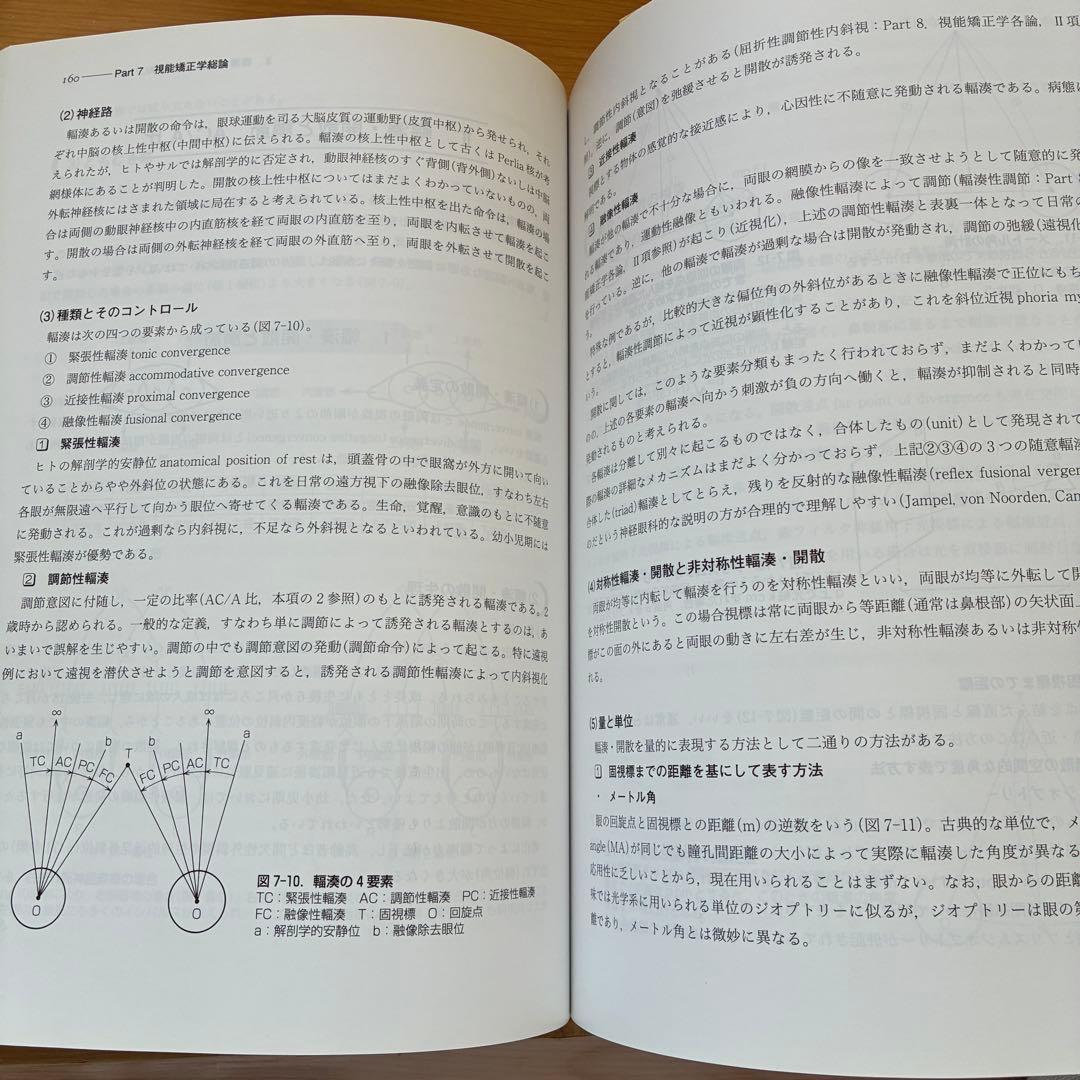 160 ── Part 7 視能矯正学総論
(2) 神経路
輻湊あるいは開散の命令は，眼球運動を司る大脳皮質の運動野(皮質中枢)から発せられ，それ
ぞれ中脳の核上性中枢(中間中枢)に伝えられる。輻湊の核上性中枢として古くは Perlia 核が考
えられたが，ヒトやサルでは解剖学的に否定され，動眼神経核のすぐ背側(背外側)ないしは中脳
網様体にあることが判明した。開散の核上性中枢についてはまだよくわかっていないものの，両
外転神経核にはさまれた領域に局在すると考えられている。核上性中枢を出た命令は，輻湊の場
合は両側の動眼神経核中の内直筋核を経て両眼の内直筋を至り，両眼を内転させて輻湊を起こ
す。開散の場合は両側の外転神経核を経て両眼の外直筋へ至り，両眼を外転させて開散を起こ
す。
(3) 種類とそのコントロール
輻湊は次の四つの要素から成っている(図 7-10)。
① 緊張性輻湊 tonic convergence
② 調節性輻湊 accommodative convergence
③ 近接性輻湊 proximal convergence
④ 融像性輻湊 fusional convergence
1 緊張性輻湊
ヒトの解剖学的安静位 anatomical position of rest は，頭蓋骨の中で眼窩が外方に開いて向い
ていることからやや外斜位の状態にある。これを日常の遠方視下の融像除去眼位，すなわち左右
各眼が無限遠へ平行して向かう眼位へ寄せてくる輻湊である。生命，覚醒，意識のもとに不随意
に発動される。これが過剰なら内斜視に，不足なら外斜視となるといわれている。幼小児期には
緊張性輻湊が優勢である。
2 調節性輻湊
調節意図に付随し，一定の比率(AC/A 比，本項の 2 参照)のもとに誘発される輻湊である。2
歳時から認められる。一般的な定義，すなわち単に調節によって誘発される輻湊とするのは，あ
いまいで誤解を生じやすい。調節の中でも調節意図の発動(調節命令)によって起こる。特に遠視
例において遠視を潜伏させようと調節を意図すると，誘発される調節性輻湊によって内斜視化
a ∞ b T b ∞ a
TC AC PC FC FC PC AC TC
O O
図 7-10. 輻湊の 4 要素
TC：緊張性輻湊 AC：調節性輻湊 PC：近接性輻湊
FC：融像性輻湊 T：固視標 O：回旋点
a：解剖学的安静位 b：融像除去眼位
調節性内斜視となることがある(屈折性調節性内斜視：Part 8. 視能矯正学各論，II 項
逆に，調節(意図)を弛緩させると開散が誘発される。
3 近接性輻湊
視標とする物体の感覚的な接近感により，心因性に不随意に発動される輻湊である。病態に
である。
4 融像性輻湊
輻湊が他の輻湊で不十分な場合に，両眼の網膜からの像を一致させようとして随意的に発
れる輻湊であり，運動性融像ともいわれる。融像性輻湊によって調節(輻湊性調節：Part 8
矯正学各論，II 項参照)が起こり(近視化)，上述の調節性輻湊と表裏一体となって日常の
を行っている。逆に，他の輻湊で輻湊が過剰な場合は開散が発動され，調節の弛緩(遠視化
特殊な例であるが，比較的大きな偏位角の外斜位があるときに融像性輻湊で正位にもち
とすると，輻湊性調節によって近視が顕性化することがあり，これを斜位近視 phoria my
う。
開散に関しては，このような要素分類もまったく行われておらず，まだよくわかってい
のの，上述の各要素の輻湊へ向かう刺激が負の方向へ働くと，輻湊が抑制されると同時
発動されるものと考えられる。
各輻湊は分離して別々に起こるものではなく，合体したもの(unit)として発現されて
際の輻湊の詳細なメカニズムはまだよく分かっておらず，上記②③④の 3 つの随意輻湊
合体した(triad)輻湊としてとらえ，残りを反射的な融像性輻湊(reflex fusional vergen
のだという神経眼科的な説明の方が合理的で理解しやすい(Jampel, von Noorden, Cam
(4) 対称性輻湊・開散と非対称性輻湊・開散
両眼が均等に内転して輻湊を行うのを対称性輻湊といい，両眼が均等に外転して開
を対称性開散という。この場合視標は常に両眼から等距離(通常は鼻根部)の矢状面上
標がこの面の外にあると両眼の動きに左右差が生じ，非対称性輻湊あるいは非対称性
れる。
(5) 量と単位
輻湊・開散を量的に表現する方法として二通りの方法がある。
1 固視標までの距離を基にして表す方法
・メートル角
眼の回旋点と固視標との距離(m)の逆数をいう(図 7-11)。古典的な単位で，メ
angle (MA)が同じでも瞳孔間距離の大小によって実際に輻湊した角度が異なる
応用性に乏しいことから，現在用いられることはまずない。なお，眼からの距離
味では光学系に用いられる単位のジオプトリーに似るが，ジオプトリーは眼の第
離であり，メートル角とは微妙に異なる。